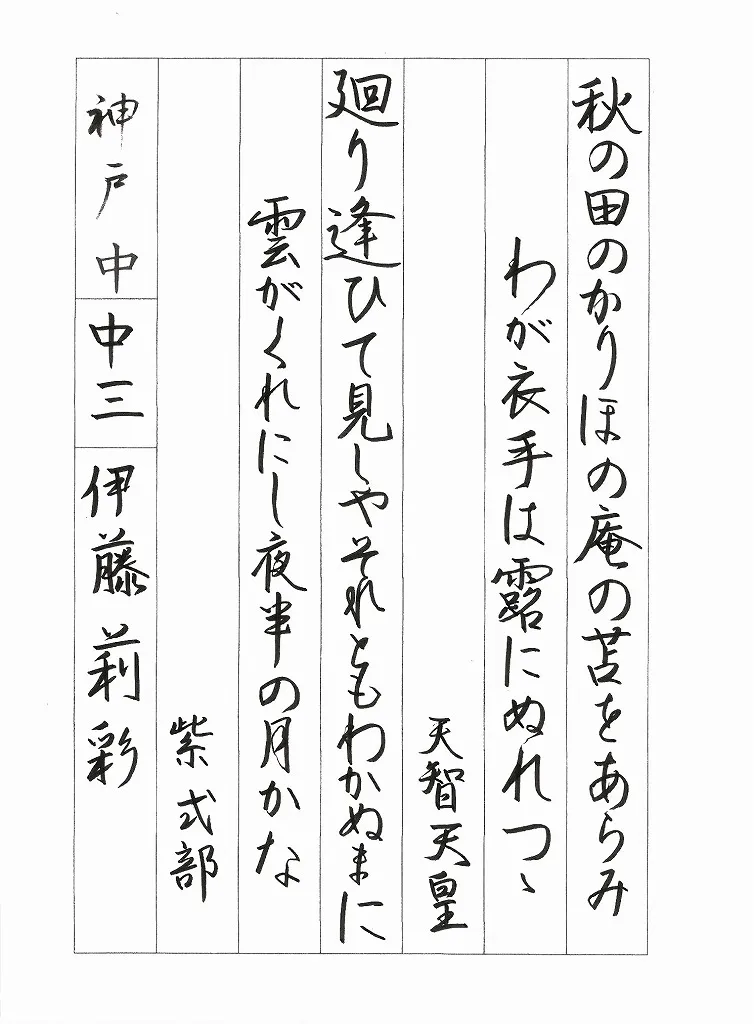 秋の田のかりほの庵の苫をあらみ
わが衣手は露にぬれつゝ
天智天皇
廻り逢ひて見しやそれともわかぬまに
雲がくれにし夜半の月かな
紫式部
神戸中 中三 伊藤莉彩